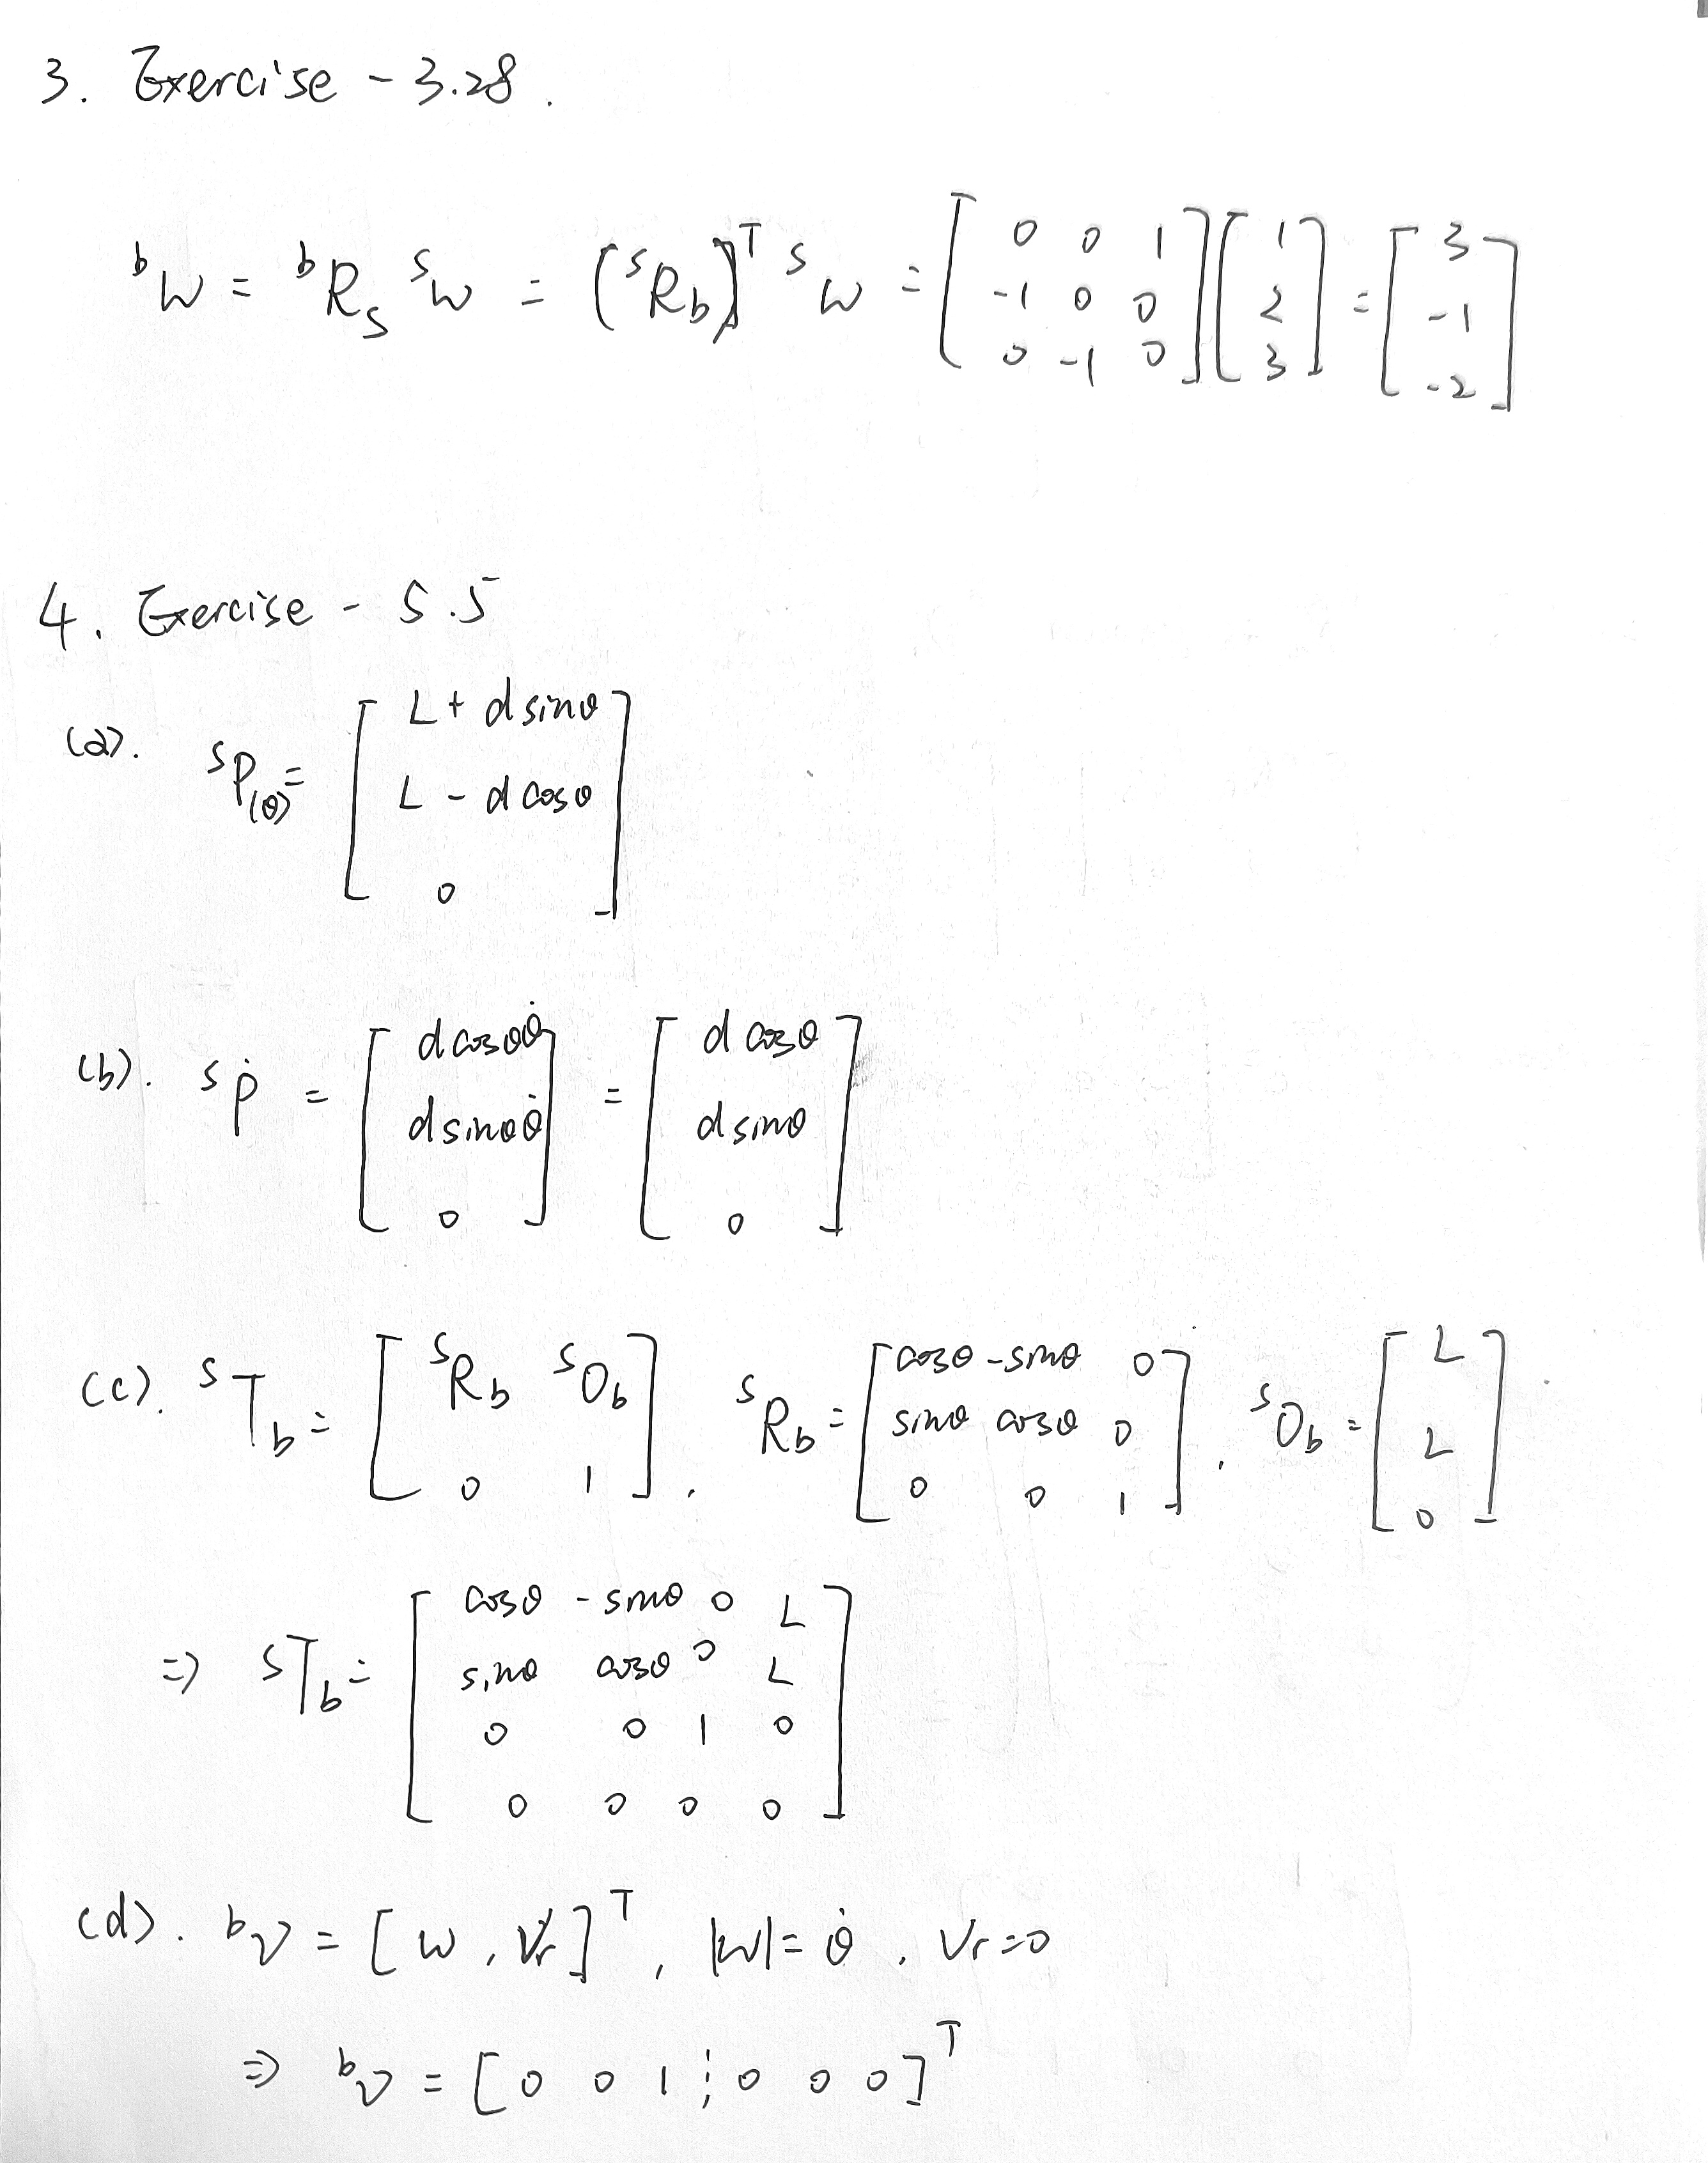 3. Exercise - 3.28.
ᵇω = ᵇRₛ ˢω = (ˢR_b)ᵀ ˢω = [0 0 1; -1 0 0; 0 -1 0] [1; 2; 3] = [3; -1; -2]
4. Exercise - 5.5
(a). ˢP(θ) = [L + d sinθ; L - d cosθ; 0]
(b). ˢṗ = [d cosθ θ̇; d sinθ θ̇; 0] = [d cosθ; d sinθ; 0]
(c). ˢT_b = [ˢR_b ˢO_b; 0 1], ˢR_b = [cosθ -sinθ 0; sinθ cosθ 0; 0 0 1], ˢO_b = [L; L; 0]
⇒ ˢT_b = [cosθ -sinθ 0 L; sinθ cosθ 0 L; 0 0 1 0; 0 0 0 0]
(d). ᵇν = [ω, Vr]ᵀ, |ω| = θ̇, Vr=0
⇒ ᵇν = [0 0 1 ¦ 0 0 0]ᵀ